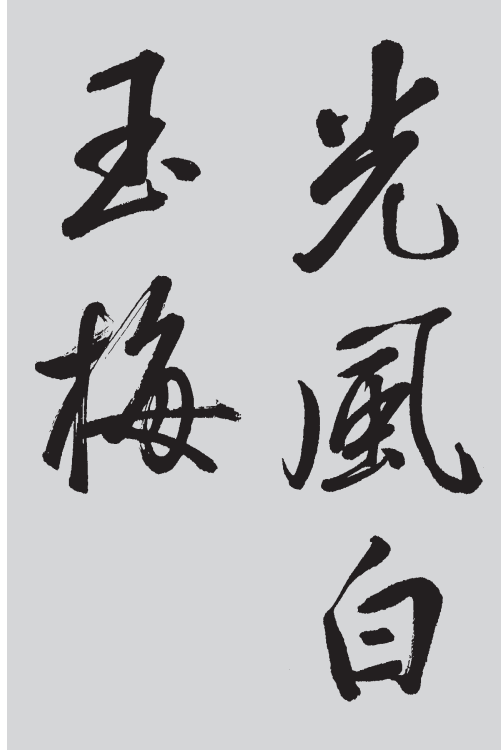 光風白
玉梅